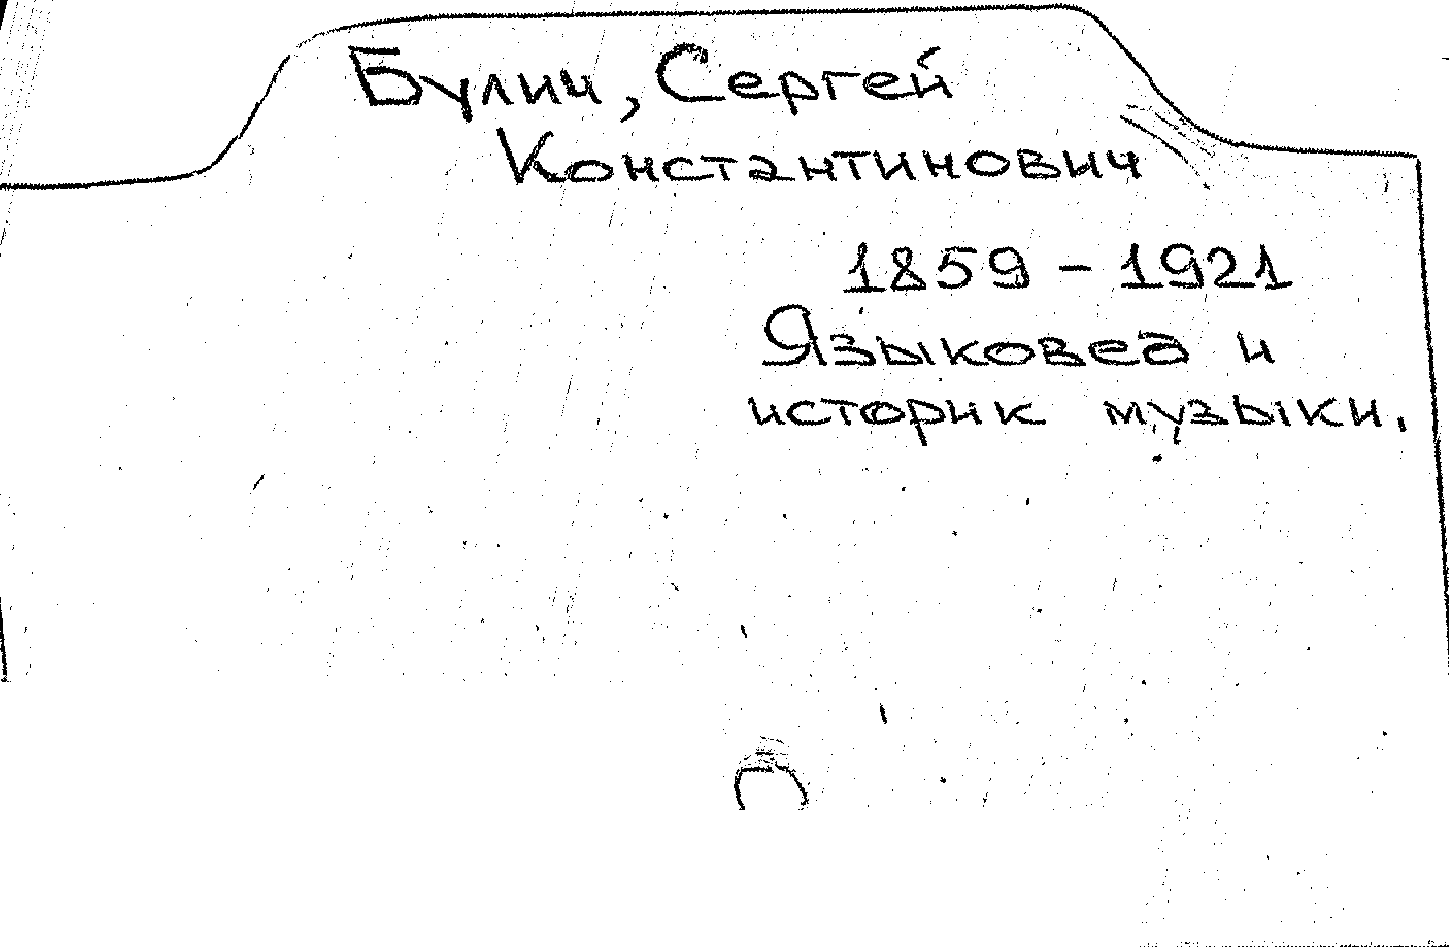 Булич, Сергей
Константинович
1859 - 1921
Языковед и
историк музыки.